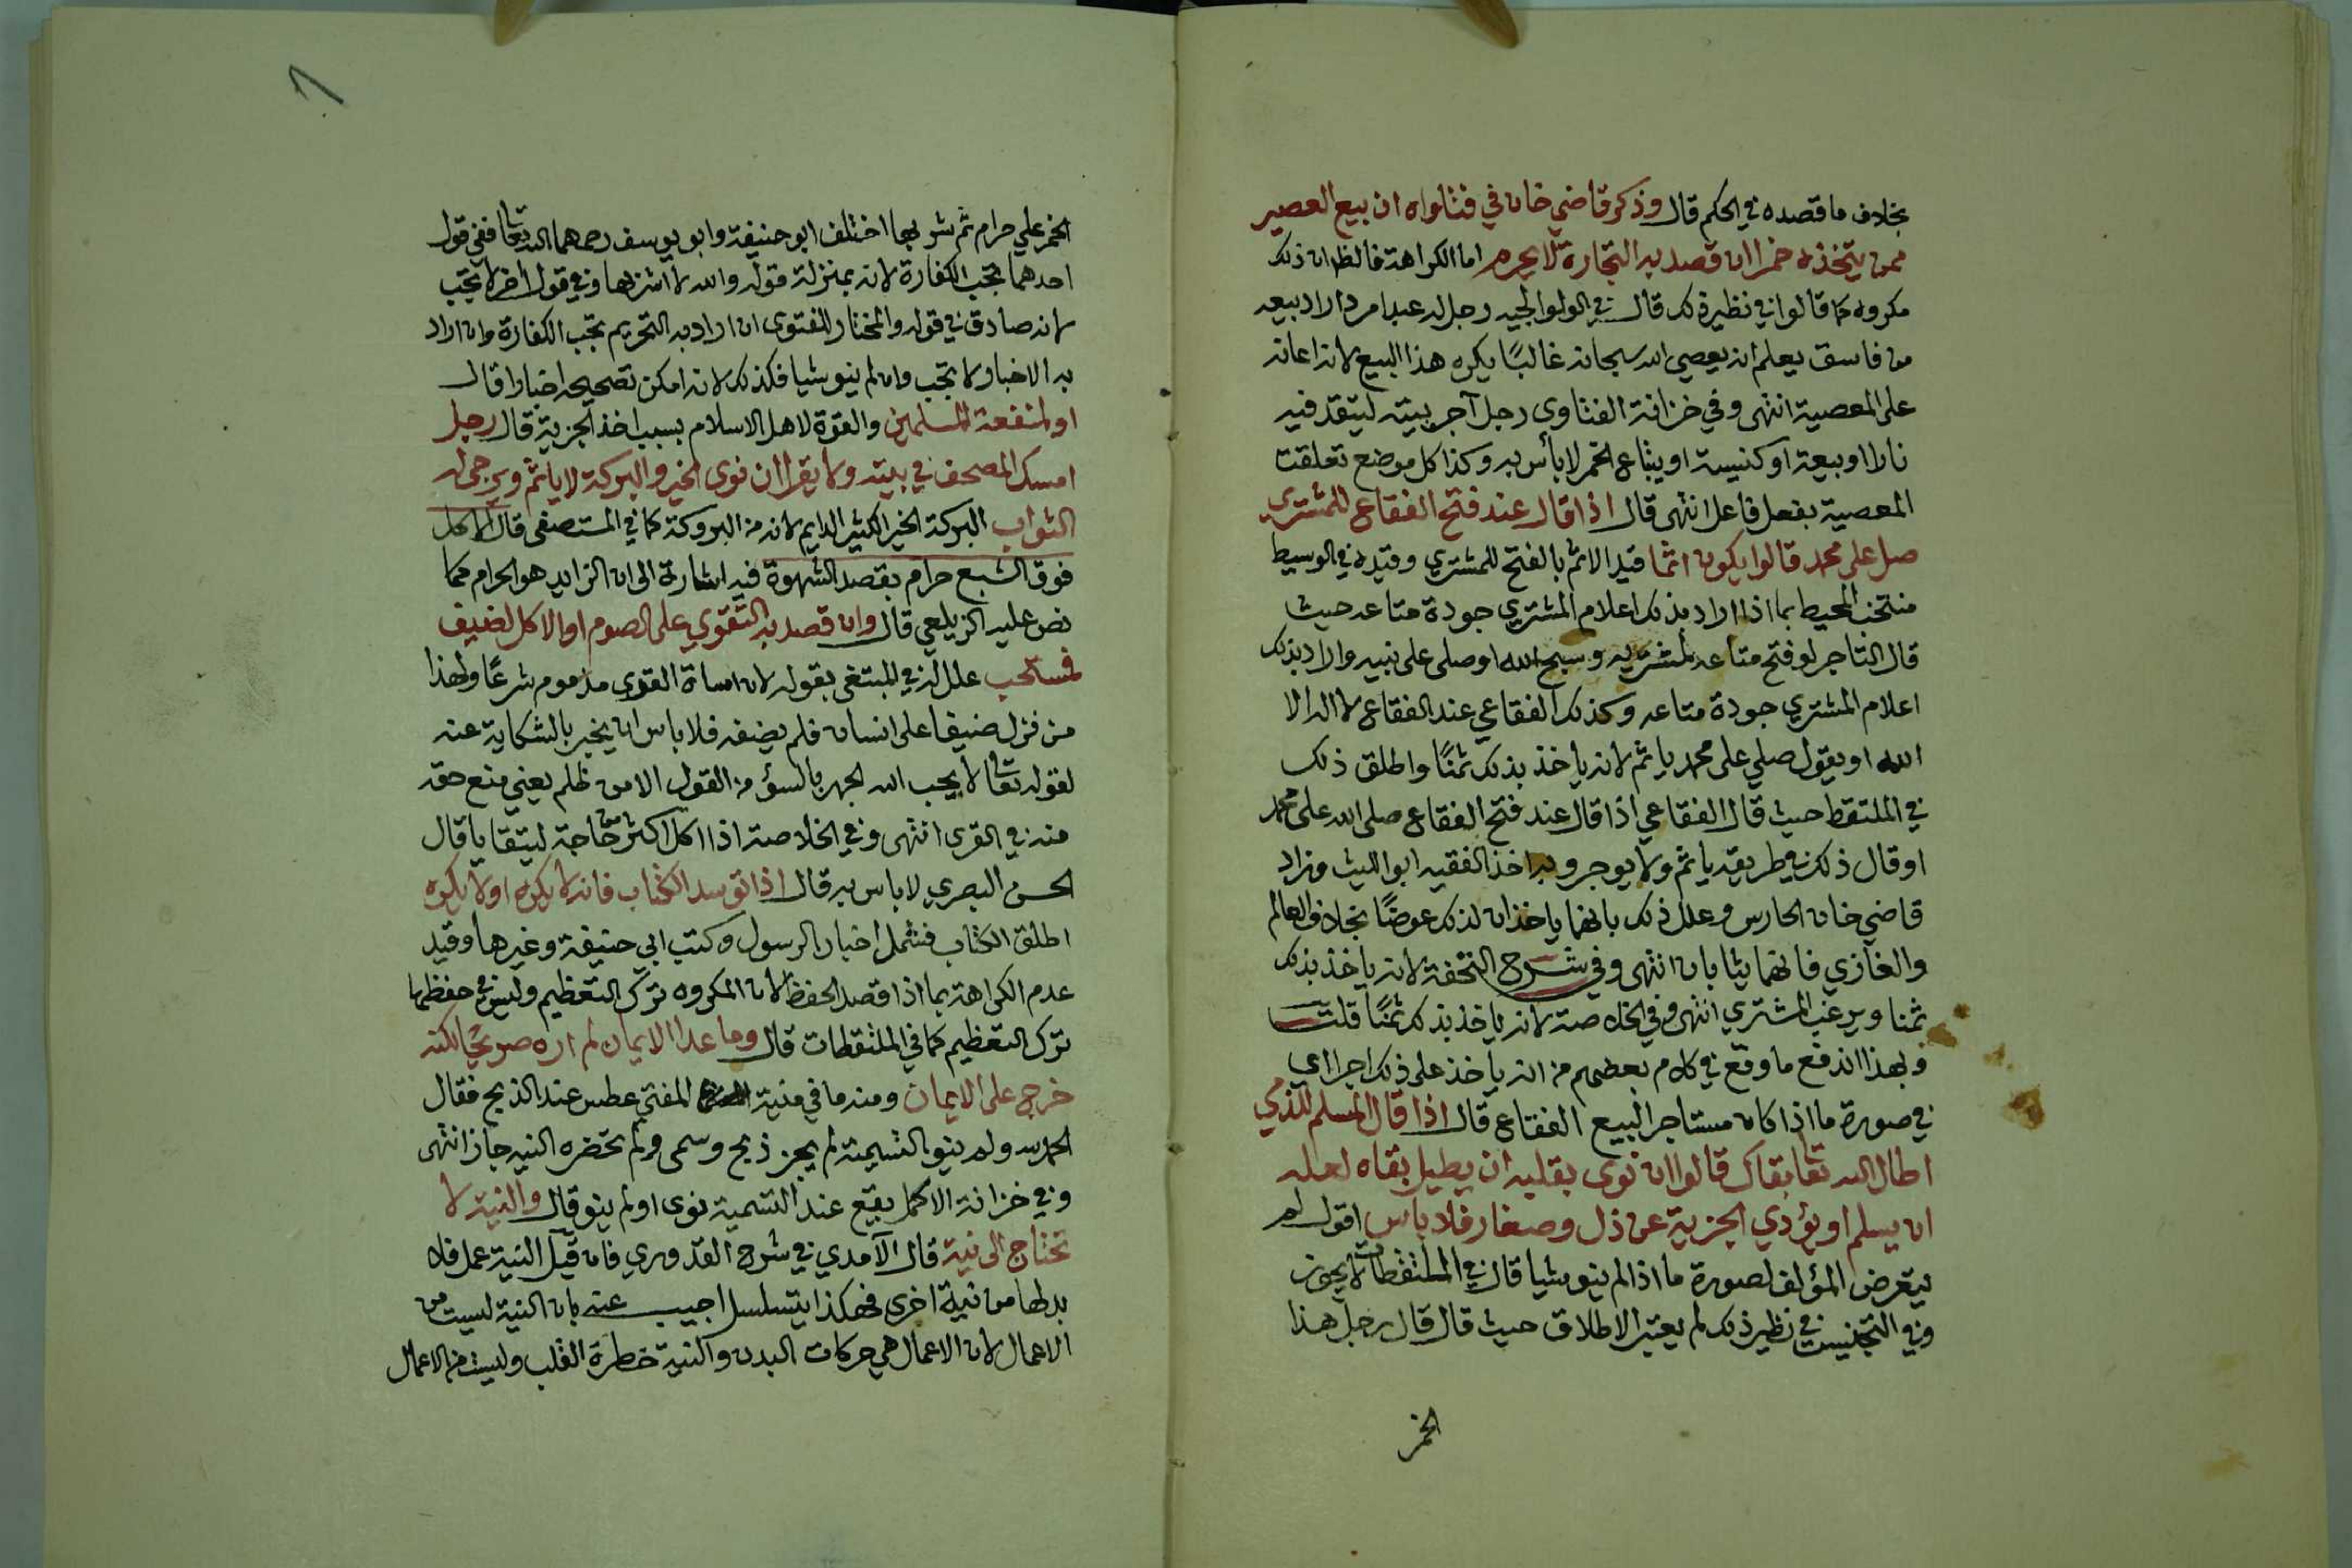 بخلاف ما قصده في الحكم قال وذكر قاضي خان في فتاواه ان بيع العصير
ممن يتخذه خمرا ان قصد به التجارة لا يحرم اما الكراهة فالظ ان ذلك
مكروه كما قالوا في نظير ذلك قال في الولوالجيه رجل له عبد امرد اراد بيعه
من فاسق يعلم انه يعصي الله سبحانه غالبًا يكره هذا البيع لانه اعانه
على المعصية انتهى وفي خزانة الفتاوى رجل آجر بيته ليتقد فيه
نارا او بيعة او كنيسة او يباع الخمر لا بأس به وكذا كل موضع تعلقت
المعصية بفعل فاعل انتهى قال اذا قال عند فتح الفقاع للمشتري
صل على محمد قالوا يكون اثما قيد الاثم بالفتح للمشتري وقيده في الوسيط
منتخب المحيط بما اذا اراد بذلك اعلام المشتري جودة متاعه حيث
قال التاجر لو فتح متاعه لمشتريه وسبح الله او صلى على نبيه واراد بذلك
اعلام المشتري جودة متاعه وكذلك الفقاعي عند الفقاع لا اله الا
الله او يقول صلي على محمد ياثم لانه يأخذ بذلك ثمنًا واطلق ذلك
في الملتقط حيث قال الفقاعي اذا قال عند فتح الفقاع صلى الله على محمد
او قال ذلك في طريقه ياثم ولا يوجر وبه اخذ الفقيه ابو الليث وزاد
قاضي خان الحارس وعلل ذلك بانهما ياخذان لذلك عوضًا بخلاف العالم
والغازي فانهما يثابان انتهى وفي شرح التحفة لانه ياخذ بذلك
ثمنا ويرغب المشتري انتهى وفي الخلاصة لانه ياخذ بذلك ثمنًا قلت
وبهذا اندفع ما وقع في كلام بعضهم من انه يأخذ على ذلك اجرا اي
في صورة ما اذا كان مستاجر البيع الفقاع قال اذا قال المسلم للذمي
اطال الله تعا بقاك قالوا ان نوى بقلبه ان يطيل بقاه لعله
ان يسلم او يؤدي الجزية عن ذل وصغار فلا باس اقول لم
يتعرض المؤلف لصورة ما اذا لم ينو شيا قال في الملتقطات لا يجوز
وفي التجنيس في نظير ذلك لم يعتبر الاطلاق حيث قال قال رجل هذا
الخمر
الخمر علي حرام ثم شربها اختلف ابو حنيفة وابو يوسف رحمهما الله تعا ففي قول
احدهما تجب الكفارة لانه بمنزلة قوله والله لا اشربها وفي قول اخر لا تجب
لانه صادق في قوله والمختار للفتوى ان اراد به التحريم تجب الكفارة وان اراد
به الاخبار لا تجب وان لم ينو شيا فكذلك لانه امكن تصحيحه اخبارا قال
او لمنفعة المسلمين والقوة لاهل الاسلام بسبب اخذ الجزية قال رجل
امسك المصحف في بيته ولا يقرا ان نوى الخير والبركة لا ياثم ويرجى له
الثواب البركة الخير الكثير الدايم لانه من البروكة كما في المستصفى قال الاكل
فوق الشبع حرام بقصد الشهوة فيه اشارة الى ان الزايد هو الحرام كما
نص عليه الزيلعي قال وان قصد به التقوي على الصوم او الاكل لضيف
فمستحب علل له في المبتغى بقوله لان اساة القوى مذموم شرعًا ولهذا
من نزل ضيفا على انسان فلم يضفه فلا باس ان يخبر بالشكاية عنه
لقوله تعا لا يحب الله الجهر بالسؤ من القول الا من ظلم يعني منع حقه
منه في القرى انتهى وفي الخلاصة اذا اكل اكثر من حاجة ليتقايا قال
الحسن البصري لا باس به قال اذا توسد الكتاب فانه لا يكره او لا يكره
اطلق الكتاب فشمل اخبار الرسول وكتب ابي حنيفة وغيرها وقيد
عدم الكراهة بما اذا قصد الحفظ لان المكروه ترك التعظيم وليس في حفظها
ترك التعظيم كما في الملتقطات قال وما عدا الايمان لم اره صريحا لكنه
خرج على الايمان ومنه ما في منية المفتي عطس عند الذبح فقال
الحمد لله ولم ينو التسمية لم يجز ذبح وسمى ولم تحضره النيه جاز انتهى
وفي خزانة الاكمل يقع عند التسمية نوى او لم ينو قال والنية لا
تحتاج الى نية قال الآمدي في شرح القدوري فان قيل النية عمل فلا
بد لها من نية اخرى فهكذا يتسلسل اجيب عنه بان النية ليست من
الاعمال لان الاعمال هي حركات البدن والنية خطرة القلب وليست من الاعمال